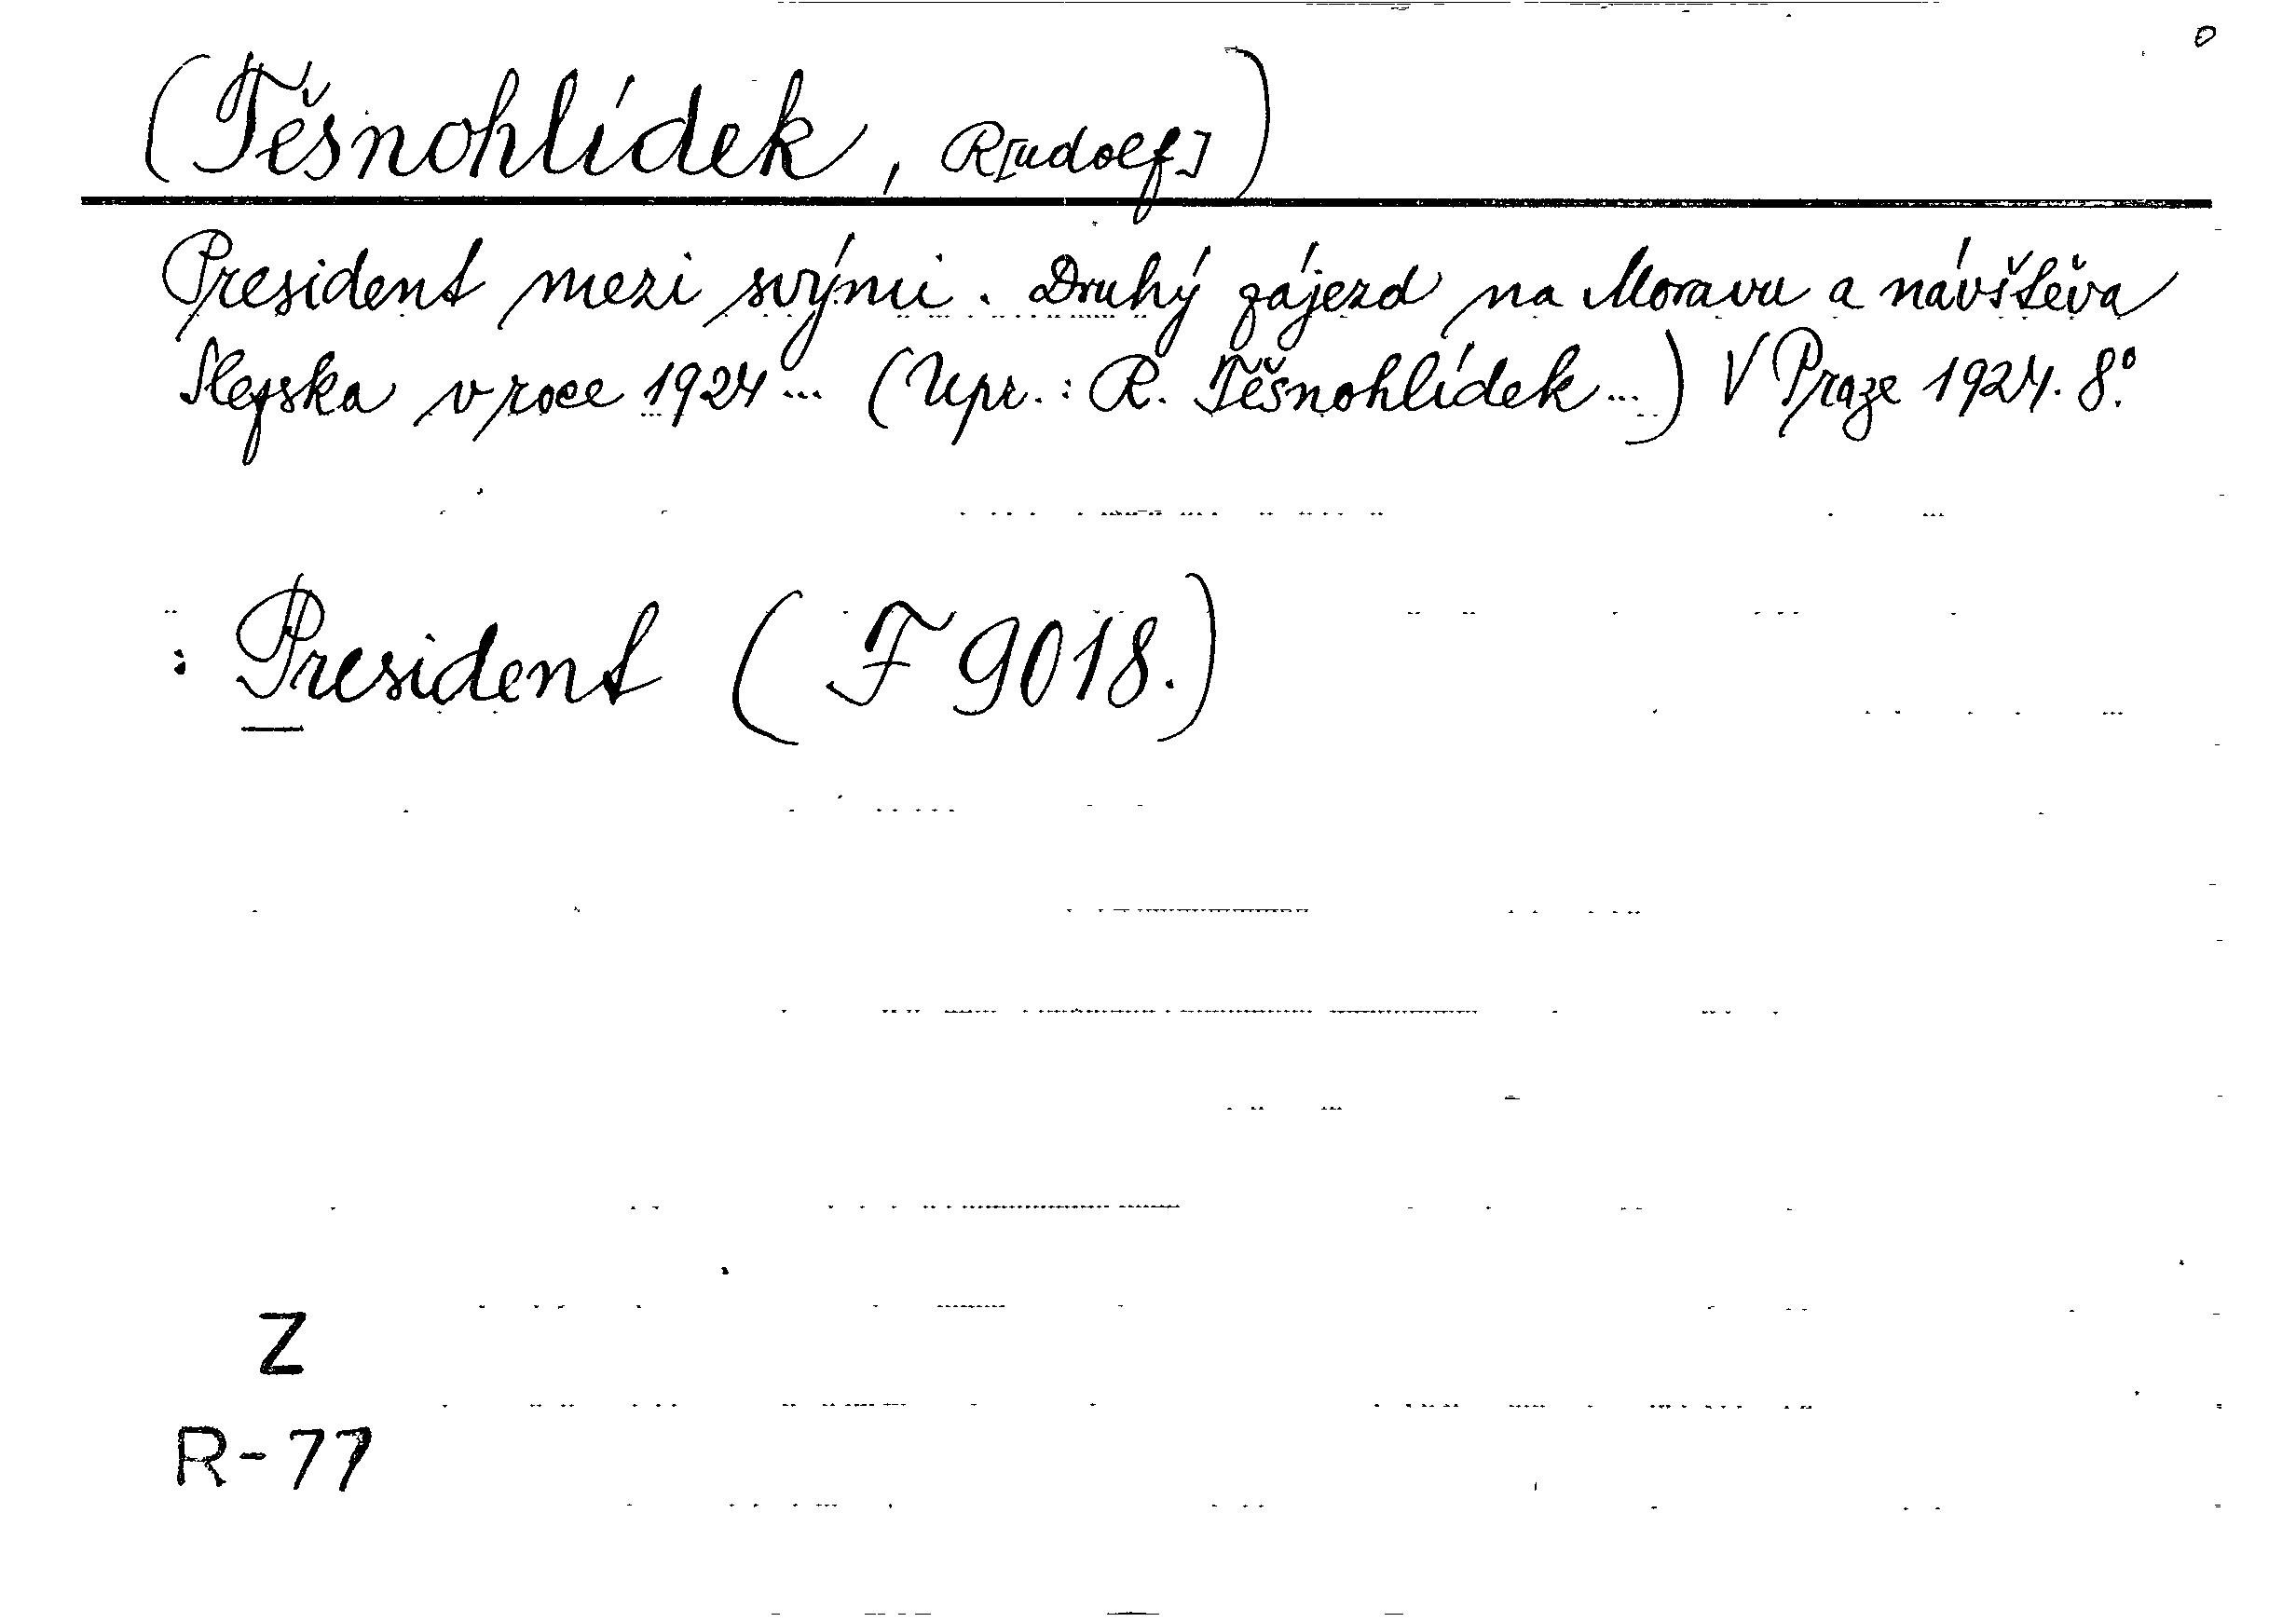 (Těsnohlídek, R[udolf])
President mezi svými. Druhý zájezd na Moravu a návštěva
Slezska v roce 1924 ... (Upr.: R. Těsnohlídek ...) V Praze 1924. 8°.
: President (F 9018.)
Z
R-77